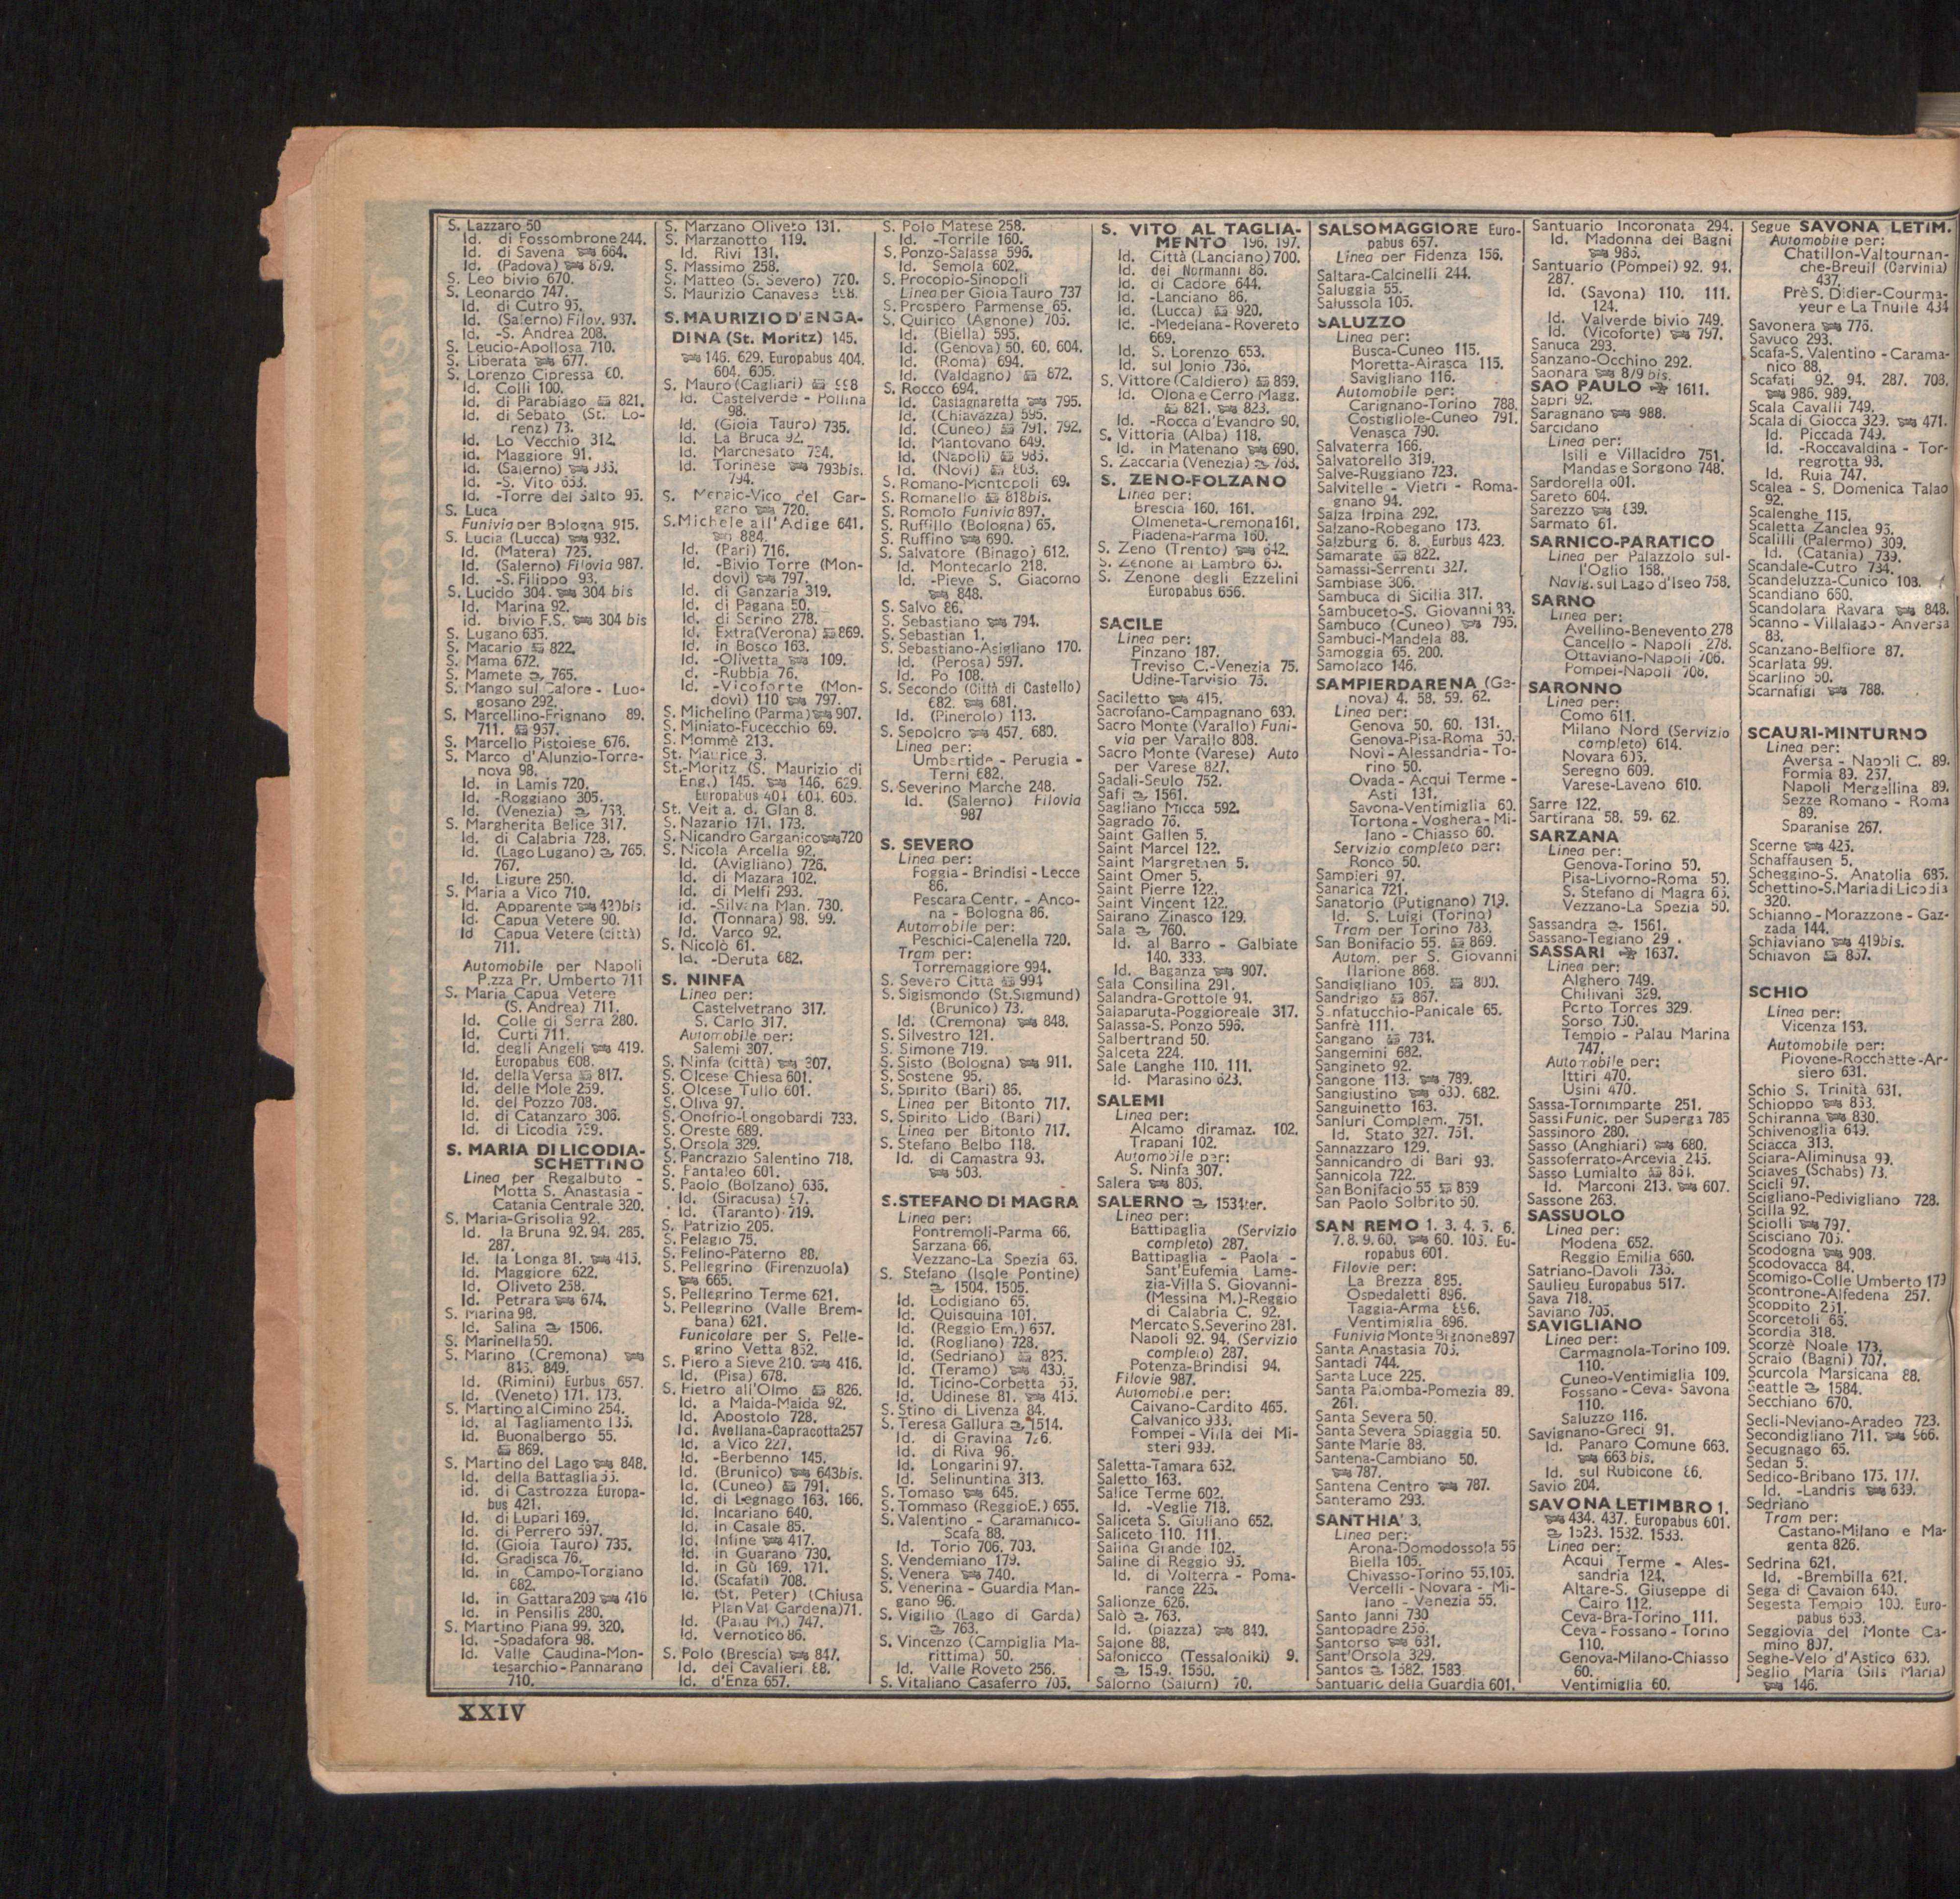 S. Lazzaro 50
Id. di Fossombrone 244.
Id. di Savena 664.
Id. (Padova) 879.
S. Leo bivio 670.
S. Leonardo 747.
Id. di Cutro 95.
Id. (Salerno) Filov. 937.
Id. -S. Andrea 208.
S. Leucio-Apollosa 710.
S. Liberata 677.
S. Lorenzo Cipressa 60.
Id. Colli 100.
Id. di Parabiago 821.
Id. di Sebato (St. Lo-
renz) 73.
Id. Lo Vecchio 312.
Id. Maggiore 91.
Id. (Salerno)
Id. -S. Vito 653.
Id. -Torre del Salto 95.
S. Luca
Funivia per Bologna 915.
S. Lucia (Lucca) 932.
Id. (Matera) 725.
Id. (Salerno) Filovia 987.
Id. -S. Filippo 93.
S. Lucido 304. 304 bis
Id. Marina 92.
id. bivio F.S. 304 bis
S. Lugano 635.
S. Macario 822.
S. Mama 672.
S. Mamete 765.
S. Mango sul Calore - Luo-
gosano 292.
S. Marcellino-Frignano 89.
711. 957.
S. Marcello Pistoiese 676.
S. Marco d'Alunzio-Torre-
nova 98.
Id. in Lamis 720.
Id. -Roggiano 305.
Id. (Venezia) 763.
S. Margherita Belice 317.
Id. di Calabria 728.
Id. (Lago Lugano) 765.
767.
Id. Ligure 250.
S. Maria a Vico 710.
Id. Apparente 420bis
Id. Capua Vetere 90.
Id Capua Vetere (città)
711.
Automobile per Napoli
P.zza Pr. Umberto 711
S. Maria Capua Vetere
(S. Andrea) 711.
Id. Colle di Serra 280.
Id. Curti 711.
Id. degli Angeli 419.
Europabus 608.
Id. della Versa 817.
Id. delle Mole 259.
Id. del Pozzo 708.
Id. di Catanzaro 306.
Id. di Licodia
S. MARIA DI LICODIA-
SCHETTINO
Linea per Regalbuto -
Motta S. Anastasia -
Catania Centrale 320.
S. Maria-Grisolia 92.
Id. la Bruna 92. 94. 285.
287.
Id. la Longa 81. 415.
Id. Maggiore 622.
Id. Oliveto 258.
Id. Petrara 674.
S. Marina 98.
Id. Salina 1506.
S. Marinella 50.
S. Marino (Cremona)
849.
Id. (Rimini) Eurbus 657.
Id. (Veneto) 171. 173.
S. Martino al Cimino 254.
Id. al Tagliamento
Id. Buonalbergo 55.
869.
S. Martino del Lago 848.
Id. della Battaglia 55.
id. di Castrozza Europa-
bus 421.
Id. di Lupari 169.
Id. di Perrero 597.
Id. (Gioia Tauro) 735.
Id. Gradisca 76.
Id. in Campo-Torgiano
682.
Id. in Gattara 209 416
Id. in Pensilis 280.
S. Martino Piana 99. 320.
Id. -Spadafora 98.
Id. Valle Caudina-Mon-
tesarchio - Pannarano
710.
S. Marzano Oliveto 131.
S. Marzanotto 119.
Id. Rivi 131.
S. Massimo 258.
S. Matteo (S. Severo) 720.
S. Maurizio Canavese
S. MAURIZIO D'ENGA-
DINA (St. Moritz) 145.
146. 629. Europabus 404.
604. 605.
S. Mauro (Cagliari)
Id. Castelverde - Pollina
98.
Id. (Gioia Tauro) 735.
Id. La Bruca 92.
Id. Marchesato 734.
Id. Torinese 793bis.
794.
S. Menaio-Vico del Gar-
gano 720.
S. Michele all'Adige 641.
884.
Id. (Pari) 716.
Id. -Bivio Torre (Mon-
dovì) 797.
Id. di Ganzaria 319.
Id. di Pagana 50.
Id. di Serino 278.
Id. Extra (Verona) 869.
Id. in Bosco 163.
Id. -Olivetta 109.
d. -Rubbia 76.
Id. -Vicoforte (Mon-
dovì) 110 797.
S. Michelino (Parma) 907.
S. Miniato-Fucecchio 69.
S. Mommè 213.
St. Maurice 3.
St.-Moritz (S. Maurizio di
Eng.) 145. 146. 629.
Europabus 404. 604. 605.
St. Veit a. d. Glan 8.
S. Nazario 171. 173.
S. Nicandro Garganico 720
S. Nicola Arcella 92.
Id. (Avigliano) 726.
Id. di Mazara 102.
Id. di Melfi 293.
id. -Silvana Man. 730.
Id. (Tonnara) 98. 99.
Id. Varco 92.
S. Nicolò 61.
Id. -Deruta 682.
S. NINFA
Linea per:
Castelvetrano 317.
S. Carlo 317.
Automobile per:
Salemi 307.
S. Ninfa (città) 307.
S. Olcese Chiesa 601.
S. Olcese Tullo 601.
S. Oliva 97.
S. Onofrio-Longobardi 733.
S. Oreste 689.
S. Orsola 329.
S. Pancrazio Salentino 718.
S. Pantaleo 601.
S. Paolo (Bolzano) 636.
Id. (Siracusa) 97.
Id. (Taranto) 719.
S. Patrizio 205.
S. Pelagio 75.
S. Pelino-Paterno 88.
S. Pellegrino (Firenzuola)
665.
S. Pellegrino Terme 621.
S. Pellegrino (Valle Brem-
bana) 621.
Funicolare per S. Pelle-
grino Vetta 852.
S. Piero a Sieve 210. 416.
Id. (Pisa) 678.
S. Pietro all'Olmo 826.
Id. a Maida-Maida 92.
Id. Apostolo 728.
Id. Avellana-Capracotta 257
Id. a Vico 227.
Id. -Berbenno 145.
Id. (Brunico) 643bis.
Id. (Cuneo) 791.
Id. di Legnago 163. 166.
Id. Incariano 640.
Id. in Casale 85.
Id. Infine 417.
Id. in Guarano 730.
Id. in Gù 169. 171.
Id. (Scafati) 708.
Id. (St. Peter) (Chiusa
Plan Val Gardena) 71.
Id. (Palau M.) 747.
Id. Vernotico 86.
S. Polo (Brescia) 847.
Id. dei Cavalieri 88.
Id. d'Enza 657.
S. Polo Matese 258.
Id. -Torrile 160.
S. Ponzo-Salassa 596.
Id. Semola 602.
S. Procopio-Sinopoli
Linea per Gioia Tauro 737
S. Prospero Parmense 65.
S. Quirico (Agnone) 705.
Id. (Biella) 595.
Id. (Genova) 50. 60. 604.
Id. (Roma) 694.
Id. (Valdagno) 872.
S. Rocco 694.
Id. Castagnaretta 795.
Id. (Chiavazza) 595.
Id. (Cuneo) 791. 792.
Id. Mantovano 649.
Id. (Napoli) 985.
Id. (Novi) 803.
S. Romano-Montopoli 69.
S. Romanello 818bis.
S. Romolo Funivia 897.
S. Ruffillo (Bologna) 65.
S. Ruffino 690.
S. Salvatore (Binago) 612.
Id. Montecarlo 218.
Id. -Pieve S. Giacorno
848.
S. Salvo 86.
S. Sebastiano 794.
S. Sebastian 1.
S. Sebastiano-Asigliano 170.
Id. (Perosa) 597.
Id. Po 108.
S. Secondo (Città di Castello)
682. 681.
Id. (Pinerolo) 113.
S. Sepolcro 457. 680.
Linea per:
Umbertide - Perugia -
Terni 682.
S. Severino Marche 248.
Id. (Salerno) Filovia
987
S. SEVERO
Linea per:
Foggia - Brindisi - Lecce
86.
Pescara Centr. - Anco-
na - Bologna 86.
Automobile per:
Peschici-Calenella 720.
Tram per:
Torremaggiore 994.
S. Severo Città 994
S. Sigismondo (St.Sigmund)
(Brunico) 73.
Id. (Cremona) 848.
S. Silvestro 121.
S. Simone 719.
S. Sisto (Bologna) 911.
S. Sostene 95.
S. Spirito (Bari) 86.
Linea per Bitonto 717.
S. Spirito Lido (Bari)
Linea per Bitonto 717.
S. Stefano Belbo 118.
Id. di Camastra 93.
503.
S. STEFANO DI MAGRA
Linea per:
Pontremoli-Parma 66.
Sarzana 66.
Vezzano-La Spezia 65.
S. Stefano (Isole Pontine)
1504. 1505.
Id. Lodigiano 65.
Id. Quisquina 101.
Id. (Reggio Em.) 657.
Id. (Rogliano) 728.
Id. (Sedriano) 826.
Id. (Teramo) 430.
Id. Ticino-Corbetta 55.
Id. Udinese 81. 415.
S. Stino di Livenza 84.
S. Teresa Gallura 1514.
Id. di Gravina 726.
Id. di Riva 96.
Id. Longarini 97.
Id. Selinuntina 313.
S. Tomaso 645.
S. Tommaso (Reggio E.) 655.
S. Valentino - Caramanico-
Scafa 88.
Id. Torio 706. 703.
S. Vendemiano 179.
S. Venera 740.
S. Venerina - Guardia Man-
gano 96.
S. Vigilio (Lago di Garda)
763.
S. Vincenzo (Campiglia Ma-
rittima) 50.
Id. Valle Roveto 256.
S. Vitaliano Casaferro 705.
S. VITO AL TAGLIA-
MENTO 196. 197.
Id. Città (Lanciano) 700.
Id. dei Normanni 86.
Id. di Cadore 644.
Id. -Lanciano 86.
Id. (Lucca) 920.
Id. -Medelana - Rovereto
669.
Id. S. Lorenzo 653.
Id. sul Jonio 736.
S. Vittore (Caldiero) 869.
Id. Olona e Cerro Magg.
821. 823.
Id. -Rocca d'Evandro 90.
S. Vittoria (Alba) 118.
Id. in Matenano 690.
S. Zaccaria (Venezia) 763.
S. ZENO-FOLZANO
Linea per:
Brescia 160. 161.
Olmeneta-Cremona 161.
Piadena-Parma 160.
S. Zeno (Trento) 642.
S. Zenone al Lambro 65.
S. Zenone degli Ezzelini
Europabus 656.
SACILE
Linea per:
Pinzano 187.
Treviso C.-Venezia 75.
Udine-Tarvisio 75.
Saciletto 415.
Sacrofano-Campagnano 689.
Sacro Monte (Varallo) Funi-
via per Varallo 808.
Sacro Monte (Varese) Auto
per Varese 827.
Sadali-Seulo 752.
Safi 1561.
Sagliano Micca 592.
Sagrado 76.
Saint Gallen 5.
Saint Marcel 122.
Saint Margrethen 5.
Saint Omer 5.
Saint Pierre 122.
Saint Vincent 122.
Sairano Zinasco 129.
Sala 760.
Id. al Barro - Galbiate
140. 333.
Id. Baganza 907.
Sala Consilina 291.
Salandra-Grottole 94.
Salaparuta-Poggioreale 317.
Salassa-S. Ponzo 596.
Salbertrand 50.
Salceta 224.
Sale Langhe 110. 111.
Id. Marasino 623.
SALEMI
Linea per:
Alcamo diramaz. 102.
Trapani 102.
Automobile per:
S. Ninfa 307.
Salera 805.
SALERNO 1534ter.
Linea per:
Battipaglia (Servizio
completo) 287.
Battipaglia - Paola -
Sant'Eufemia Lame-
zia-Villa S. Giovanni-
(Messina M.)-Reggio
di Calabria C. 92.
Mercato S.Severino 281.
Napoli 92. 94. (Servizio
completo) 287.
Potenza-Brindisi 94.
Filovie 987.
Automobile per:
Caivano-Cardito 465.
Calvanico 933.
Pompei - Villa dei Mi-
steri 939.
Saletta-Tamara 652.
Saletto 163.
Salice Terme 602.
Id. -Veglie 718.
Saliceta S. Giuliano 652.
Saliceto 110. 111.
Salina Grande 102.
Saline di Reggio 95.
Id. di Volterra - Poma-
rance 225.
Salionze 626.
Salò 763.
Id. (piazza) 840.
Salone 88.
Salonicco (Tessaloniki) 9.
1549. 1550.
Salorno (Salurn) 70.
SALSOMAGGIORE Euro-
pabus 657.
Linea per Fidenza 156.
Saltara-Calcinelli 244.
Saluggia 55.
Salussola 105.
SALUZZO
Linea per:
Busca-Cuneo 115.
Moretta-Airasca 115.
Savigliano 116.
Automobile per:
Carignano-Torino 788.
Costigliole-Cuneo 791.
Venasca 790.
Salvaterra 166.
Salvatorello 319.
Salve-Ruggiano 723.
Salvitelle - Vietri - Roma-
gnano 94.
Salza Irpina 292.
Salzano-Robegano 173.
Salzburg 6. 8. Eurbus 423.
Samarate 822.
Samassi-Serrenti 327.
Sambiase 306.
Sambuca di Sicilia 317.
Sambuceto-S. Giovanni 83.
Sambuco (Cuneo) 795.
Sambuci-Mandela 88.
Samoggia 65. 200.
Samolaco 146.
SAMPIERDARENA (Ge-
nova) 4. 58. 59. 62.
Linea per:
Genova 50. 60. 131.
Genova-Pisa-Roma 50.
Novi - Alessandria - To-
rino 50.
Ovada - Acqui Terme -
Asti 131.
Savona-Ventimiglia 60.
Tortona - Voghera - Mi-
lano - Chiasso 60.
Servizio completo per:
Ronco 50.
Sampieri 97.
Sanarica 721.
Sanatorio (Putignano) 719.
Id. S. Luigi (Torino)
Tram per Torino 783.
San Bonifacio 55. 869.
Autom. per S. Giovanni
Ilarione 868.
Sandigliano 105. 800.
Sandrigo 867.
S nfatucchio-Panicale 65.
Sanfrè 111.
Sangano 731.
Sangemini 682.
Sangineto 92.
Sangone 113. 789.
Sangiustino 682.
Sanguinetto 163.
Sanluri Complem. 751.
Id. Stato 327. 751.
Sannazzaro 129.
Sannicandro di Bari 93.
Sannicola 722.
San Bonifacio 55 869
San Paolo Solbrito 50.
SAN REMO 1. 3. 4. 5. 6.
7. 8. 9. 60. 60. 105. Eu-
ropabus 601.
Filovie per:
La Brezza 895.
Ospedaletti 896.
Taggia-Arma 896.
Ventimiglia 896.
Funivia Monte Bignone 897
Santa Anastasia 705.
Santadi 744.
Santa Luce 225.
Santa Palomba-Pomezia 89.
261.
Santa Severa 50.
Santa Severa Spiaggia 50.
Sante Marie 88.
Santena-Cambiano 50.
787.
Santena Centro 787.
Santeramo 293.
SANTHIA' 3.
Linea per:
Arona-Domodossola 55
Biella 105.
Chivasso-Torino 55.105.
Vercelli - Novara - Mi-
lano - Venezia 55.
Santo Janni 730
Santopadre 256.
Santorso 631.
Sant'Orsola 329.
Santos 1582. 1583.
Santuario della Guardia 601.
Santuario Incoronata 294.
Id. Madonna dei Bagni
986.
Santuario (Pompei) 92. 94.
287.
Id. (Savona) 110. 111.
124.
Id. Valverde bivio 749.
Id. (Vicoforte) 797.
Sanuca 293.
Sanzano-Occhino 292.
Saonara 879 bis.
SAO PAULO 1611.
Sapri 92.
Saragnano 988.
Sarcidano
Linea per:
Isili e Villacidro 751.
Mandas e Sorgono 748.
Sardorella 601.
Sareto 604.
Sarezzo 839.
Sarmato 61.
SARNICO-PARATICO
Linea per Palazzolo sul-
l'Oglio 158.
Navig. sul Lago d'Iseo 758.
SARNO
Linea per:
Avellino-Benevento 278
Cancello - Napoli 278.
Ottaviano-Napoli 706.
Pompei-Napoli 706.
SARONNO
Linea per:
Como 611.
Milano Nord (Servizio
completo) 614.
Novara 605.
Seregno 609.
Varese-Laveno 610.
Sarre 122.
Sartirana 58. 59. 62.
SARZANA
Linea per:
Genova-Torino 50.
Pisa-Livorno-Roma 50.
S. Stefano di Magra 65.
Vezzano-La Spezia 50.
Sassandra 1561.
Sassano-Tegiano
SASSARI 1637.
Linea per:
Alghero 749.
Chilivani 329.
Porto Torres 329.
Sorso 750.
Tempio - Palau Marina
747.
Automobile per:
Ittiri 470.
Usini 470.
Sassa-Tornimparte 251.
Sassi Funic. per Superga 785
Sassinoro 280.
Sasso (Anghiari) 680.
Sassoferrato-Arcevia 245.
Sasso Lumialto 854.
Id. Marconi 213. 607.
Sassone 263.
SASSUOLO
Linea per:
Modena 652.
Reggio Emilia 660.
Satriano-Davoli 735.
Saulieu Europabus 517.
Sava 718.
Saviano 705.
SAVIGLIANO
Linea per:
Carmagnola-Torino 109.
110.
Cuneo-Ventimiglia 109.
Fossano - Ceva - Savona
110.
Saluzzo 116.
Savignano-Greci 91.
Id. Panaro Comune 663.
663 bis.
Id. sul Rubicone 86.
Savio 204.
SAVONA LETIMBRO 1.
434. 437. Europabus 601.
1523. 1532. 1533.
Linea per:
Acqui Terme - Ales-
sandria 124.
Altare-S. Giuseppe di
Cairo 112.
Ceva-Bra-Torino 111.
Ceva - Fossano - Torino
110.
Genova-Milano-Chiasso
60.
Ventimiglia 60.
Segue SAVONA LETIM.
Automobile per:
Chatillon-Valtournan-
che-Breuil (Cervinia)
437.
Prè S. Didier-Courma-
yeur e La Thuile 434
Savonera 775.
Savuco 293.
Scafa-S. Valentino - Carama-
nico 88.
Scafati 92. 94. 287. 708.
986. 989.
Scala Cavalli 749.
Scala di Giocca 329. 471.
Id. Piccada 749.
Id. -Roccavaldina - Tor-
regrotta 98.
Id. Ruia 747.
Scalea - S. Domenica Talao
92.
Scalenghe 115.
Scaletta Zanclea 95.
Scalilli (Palermo) 309.
Id. (Catania) 739.
Scandale-Cutro 734.
Scandeluzza-Cunico 108.
Scandiano 660.
Scandolara Ravara 848.
Scanno - Villalago - Anversa
88.
Scanzano-Belfiore 87.
Scarlata 99.
Scarlino 50.
Scarnafigi 788.
SCAURI-MINTURNO
Linea per:
Aversa - Napoli C. 89.
Formia 89. 267.
Napoli Mergellina 89.
Sezze Romano - Roma
89.
Sparanise 267.
Scerne 425.
Schaffausen 5.
Scheggino-S. Anatolia 685.
Schettino-S.Maria di Licodia
320.
Schianno - Morazzone - Gaz-
zada 144.
Schiaviano 419bis.
Schiavon 867.
SCHIO
Linea per:
Vicenza 163.
Automobile per:
Piovene-Rocchette-Ar-
siero 631.
Schio S. Trinità 631.
Schioppo 853.
Schiranna 830.
Schivenoglia 649.
Sciacca 313.
Sciara-Aliminusa 99.
Sciaves (Schabs) 73.
Scicli 97.
Scigliano-Pedivigliano 728.
Scilla 92.
Sciolli 797.
Scisciano 705.
Scodogna 908.
Scodovacca 84.
Scomigo-Colle Umberto 179
Scontrone-Alfedena 257.
Scoppito 251.
Scorcetoli 66.
Scordia 318.
Scorzè Noale 173.
Scraio (Bagni) 707.
Scurcola Marsicana 88.
Seattle 1584.
Secchiano 670.
Secli-Neviano-Aradeo 723.
Secondigliano 711. 966.
Secugnago 65.
Sedan 5.
Sedico-Bribano 175. 177.
Id. -Landris 639.
Sedriano
Tram per:
Castano-Milano e Ma-
genta 826.
Sedrina 621.
Id. -Brembilla 621.
Sega di Cavaion 640.
Segesta Tempio 100. Euro-
pabus 653.
Seggiovia del Monte Ca-
mino 807.
Seghe-Velo d'Astico 630.
Seglio Maria (Sils Maria)
146.
XXIV